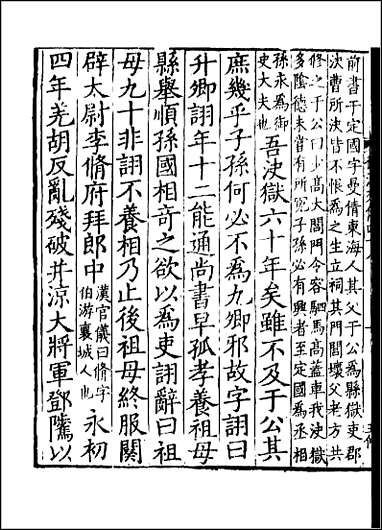 前書于定國字曼倩東海人其父于公爲縣獄吏郡
決曹所決皆不恨爲之生立祠其門閭壞父老方共
修之于公曰少髙大閭門令容駟馬髙蓋車我決獄
多陰德未嘗有所冤子孫必有興者至定國爲丞相
孫永爲御
史大夫也
吾決獄六十年矣雖不及于公其
庶幾乎子孫何必不爲九卿邪故字詡曰
升卿詡年十二能通尚書早孤孝養祖母
縣舉順孫國相竒之欲以爲吏詡辭曰祖
母九十非詡不養相乃止後祖母終服闋
辟太尉李脩府拜郎中
漢官儀曰脩字
伯游襄城人也
永初
四年羌胡反亂殘破并涼大將軍鄧騭以